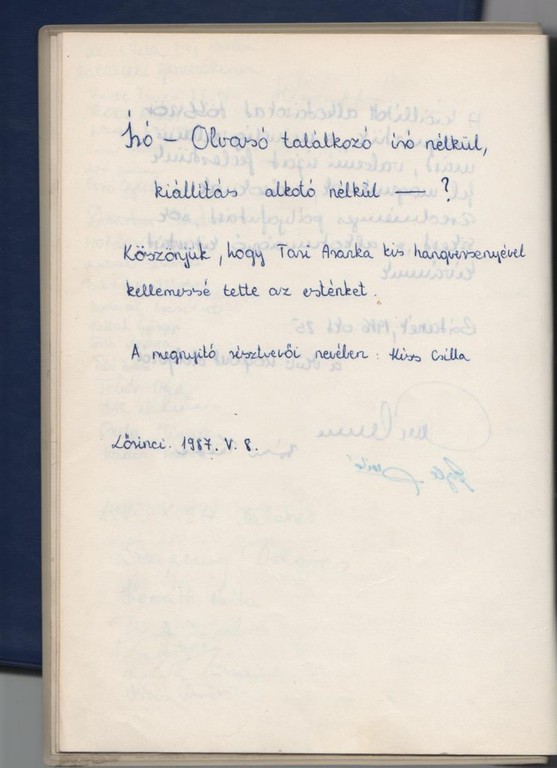 Író - Olvasó találkozó író nélkül,
kiállítás alkotó nélkül — ?
Köszönjük, hogy Tasi Asanka kis hangversenyével
kellemessé tette az esténket.
A megnyitó résztvevői nevében: Kiss Csilla
Lőrinci. 1987. V. 8.